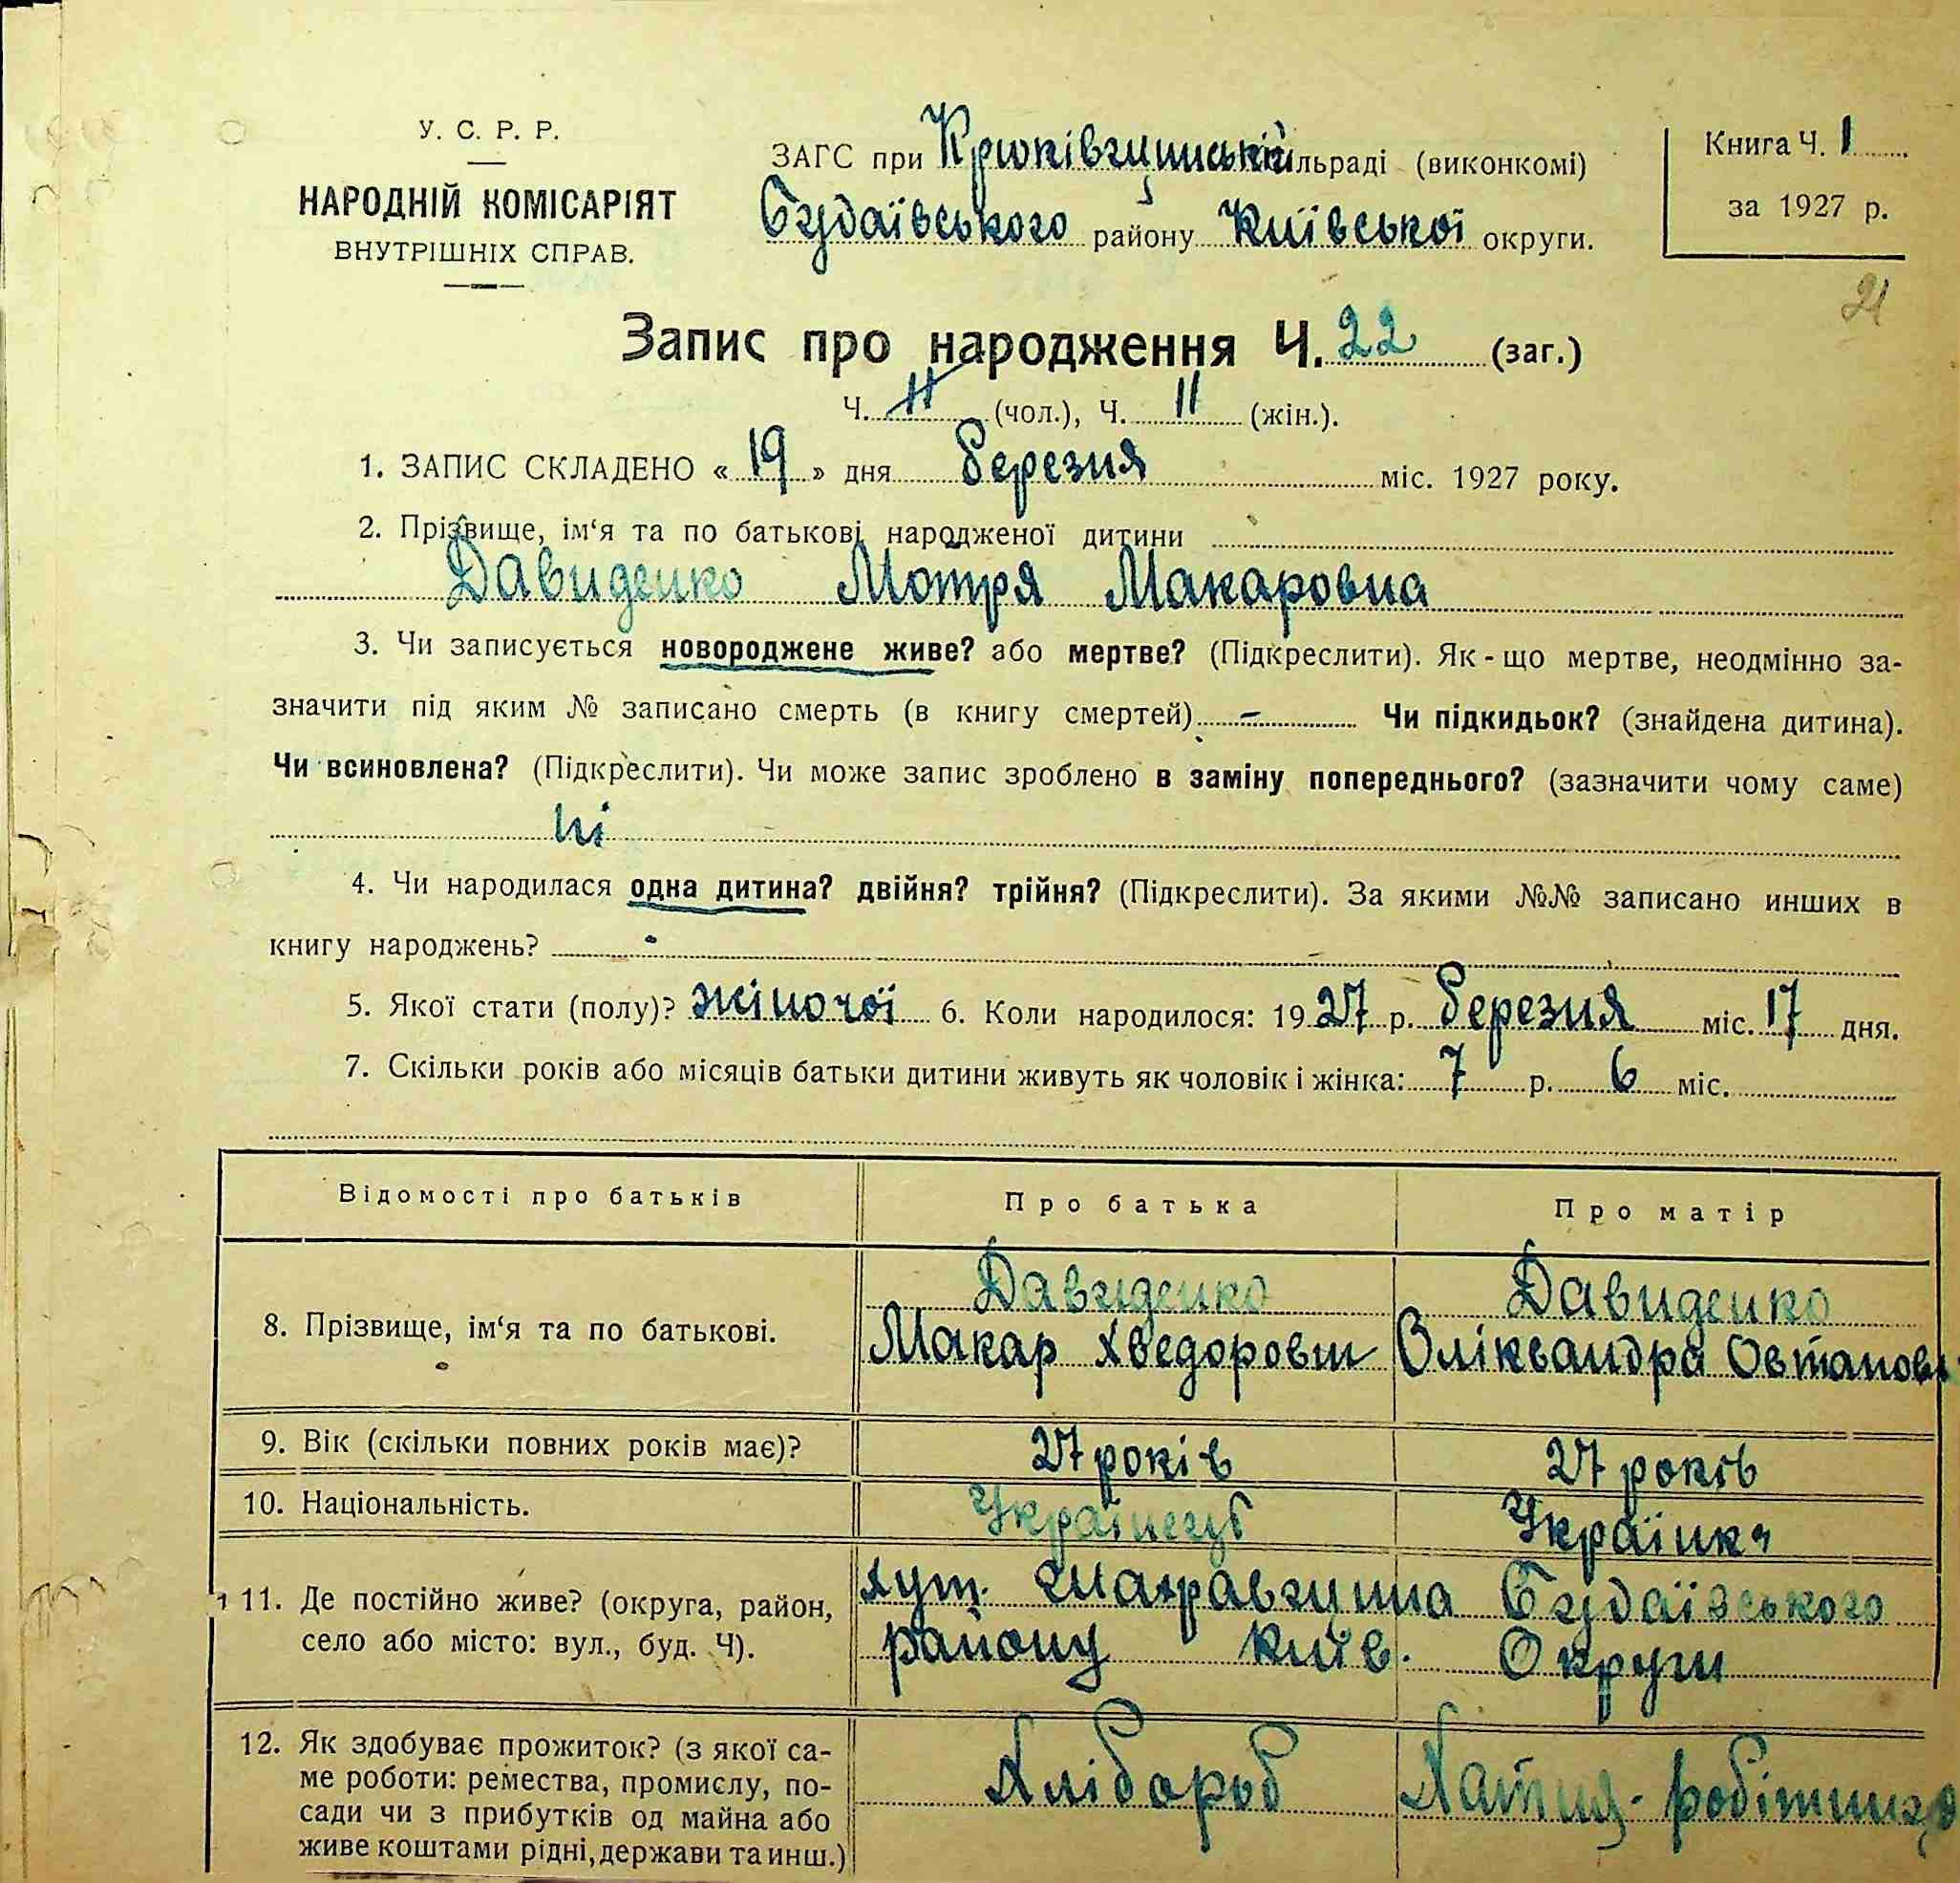 У. С. Р. Р.
НАРОДНІЙ КОМІСАРІЯТ
ВНУТРІШНІХ СПРАВ.
ЗАГС при Крюківщинській сільраді (виконкомі)
Будаївського району Київської округи.
Книга Ч. 1
за 1927 р.
21
Запис про народження Ч. 22 (заг.)
Ч. 11 (чол.), Ч. 11 (жін.).
1. ЗАПИС СКЛАДЕНО « 19 » дня березня міс. 1927 року.
2. Прізвище, ім‘я та по батькові народженої дитини
Давиденко Мотря Макаровна
3. Чи записується новороджене живе? або мертве? (Підкреслити). Як - що мертве, неодмінно за-
значити під яким № записано смерть (в книгу смертей) – Чи підкидьок? (знайдена дитина).
Чи всиновлена? (Підкреслити). Чи може запис зроблено в заміну попереднього? (зазначити чому саме)
ні
4. Чи народилася одна дитина? двійня? трійня? (Підкреслити). За якими №№ записано инших в
книгу народжень?
5. Якої стати (полу)? жіночої 6. Коли народилося: 1927 р. березня міс. 17 дня.
7. Скільки років або місяців батьки дитини живуть як чоловік і жінка: 7 р. 6 міс.
Відомості про батьків Про батька Про матір
8. Прізвище, ім‘я та по батькові. Давиденко Давиденко
Макар Хведорови Оліксандра Остапов
9. Вік (скільки повних років має)? 27 років 27 років
10. Національність. Українець Українка
11. Де постійно живе? (округа, район, хут. Будаївського
село або місто: вул., буд. Ч). району Київ. Округи
12. Як здобуває прожиток? (з якої са- Хлібороб Хатня робітниця
ме роботи: ремества, промислу, по-
сади чи з прибутків од майна або
живе коштами рідні, держави та инш.)